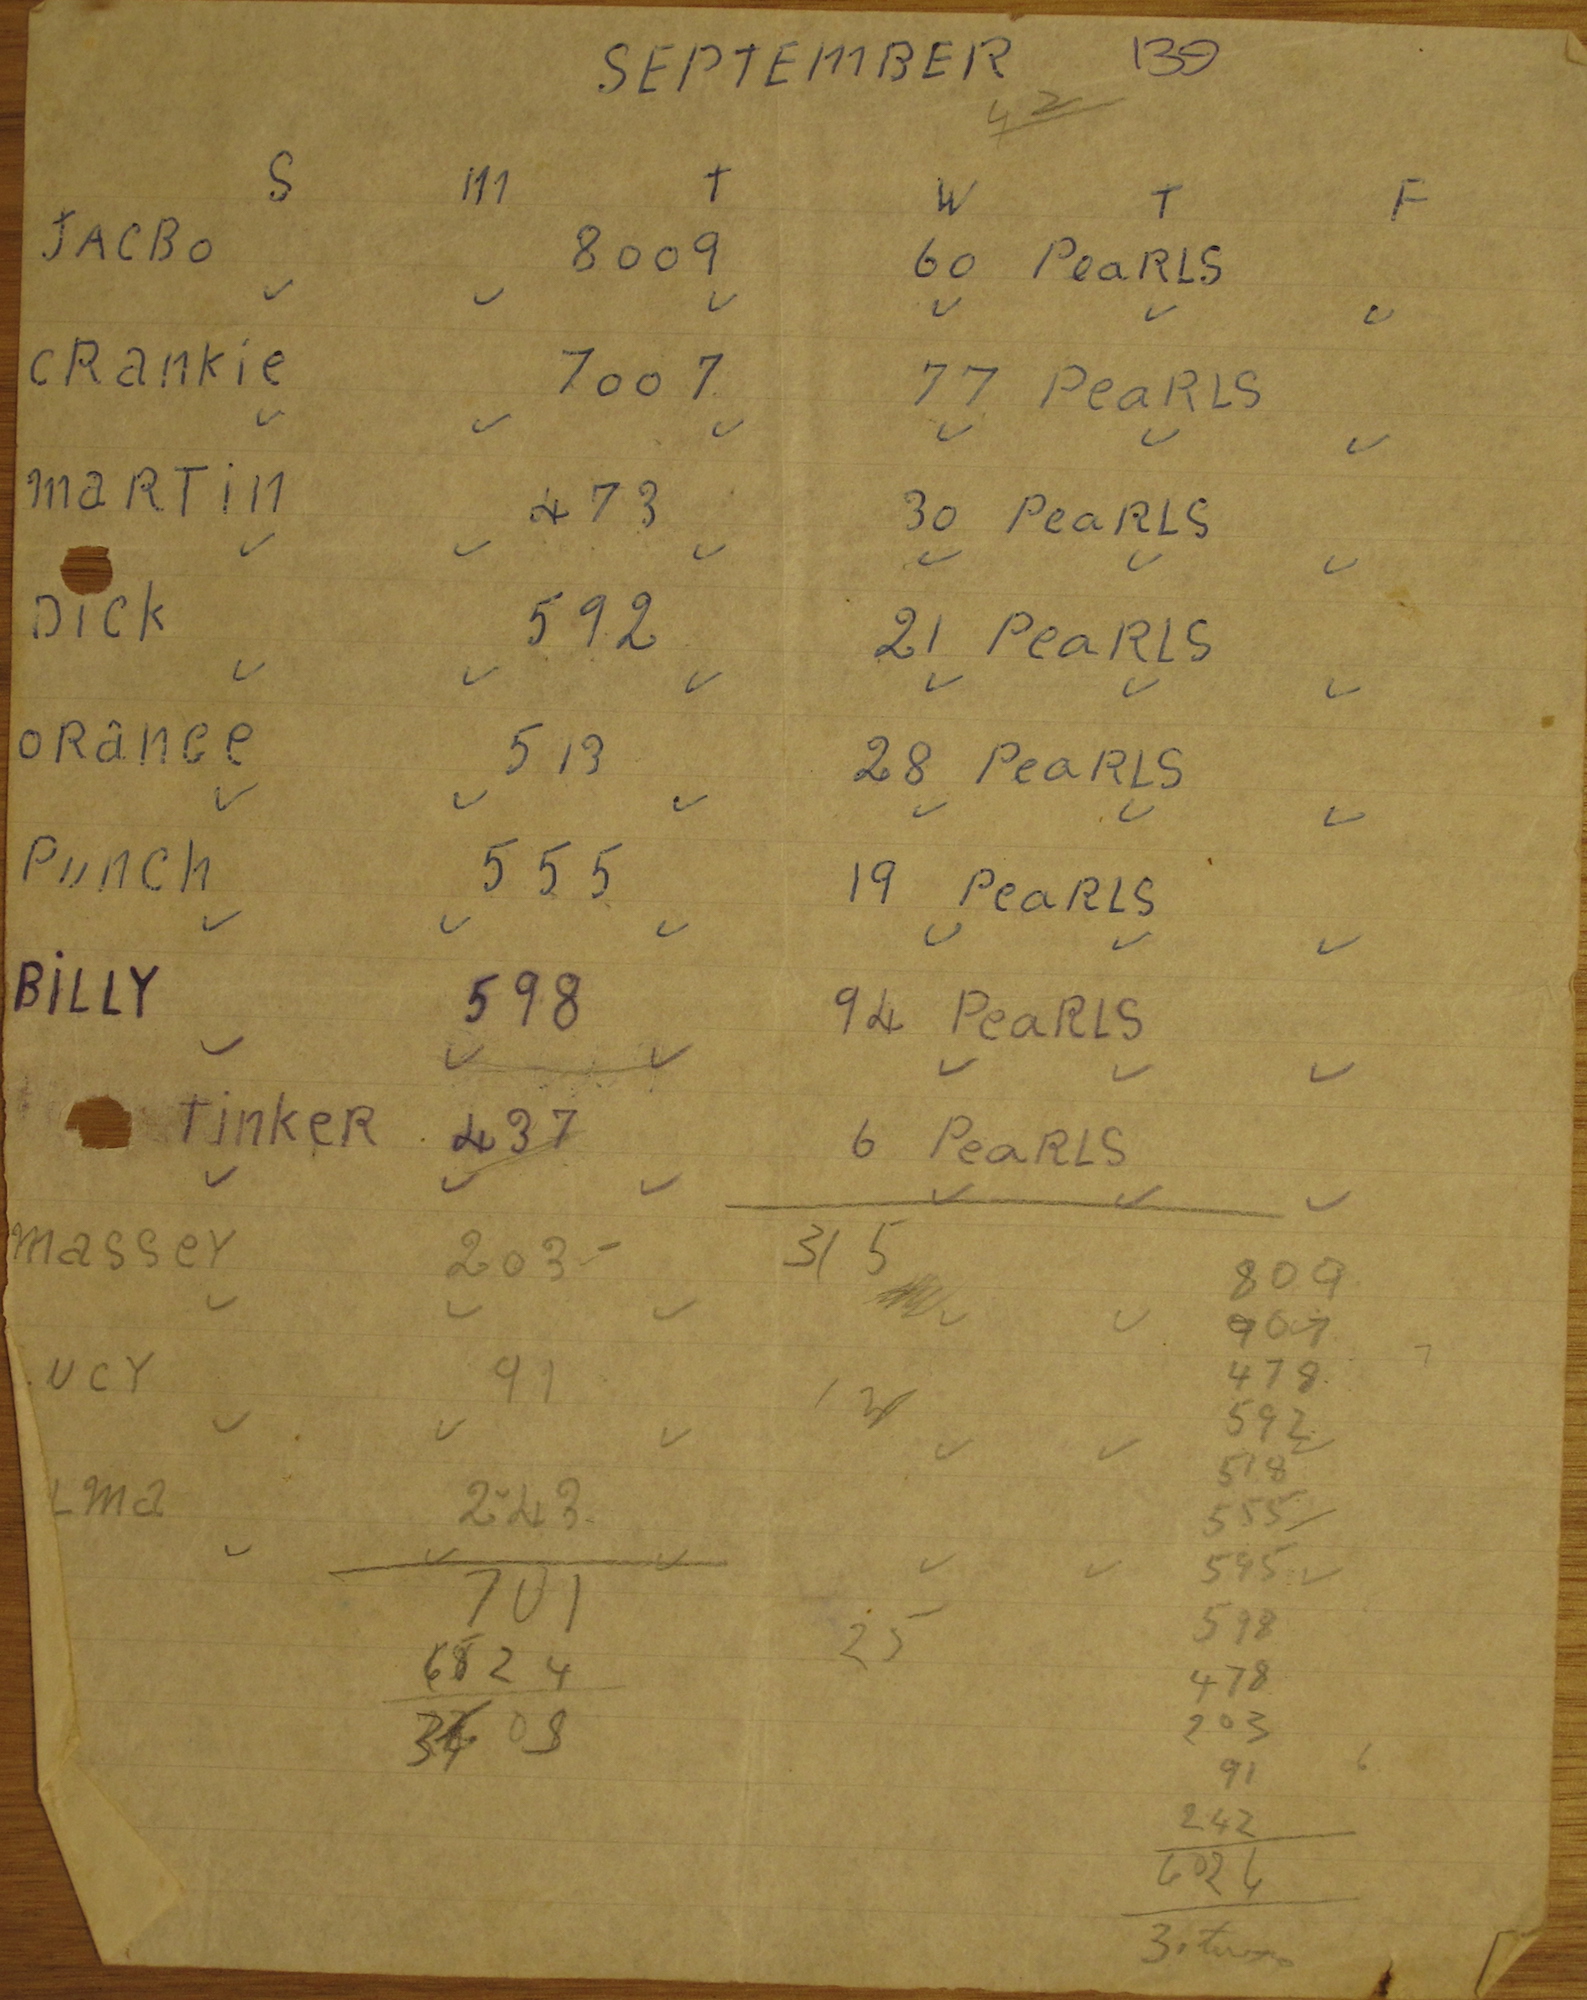 SEPTEMBER 139
42
S M T W T F
JACBO 8009 60 PeaRLS
CRankie 7007 77 PeaRLS
MaRTiN 473 30 PeaRLS
DICK 592 21 PeaRLS
ORanGe 513 28 PeaRLS
PunCh 555 19 PeaRLS
BiLLY 598 94 PeaRLS
TinkeR 437 6 PeaRLS
MasseY 203- 315 809
907
UCY 91 478
592
518
LMa 243 555
595
701 598
6824 25 478
08 203
91
242
6024